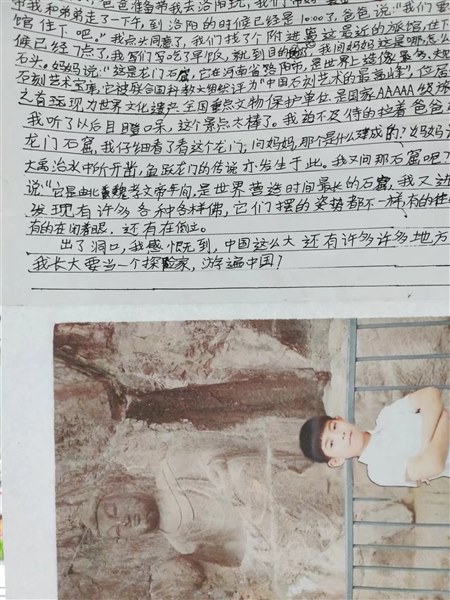 爸爸准备带我去洛阳玩,我们
带我和弟弟走了一下午,到洛阳的时候已经是10:00了,爸爸说:"我们
馆住下吧。"我点头同意了,我们找了个附近离这最近的旅馆,住下
候已经7点了,我匆匆吃了早饭,就到目的了,我问妈妈这是哪,怎么
石头。妈妈说:"这是龙门石窟,它在河南省洛阳市,是世界上造像
石刻艺术宝库,它被联合国科教文组织评为"中国石刻艺术的最高峰",位居
之首现为世界文化遗产、全国重点文物保护单位、是国家AAAAA级旅
我听了以后目瞪口呆,这个景点太棒了。我迫不及侍的拉着爸爸
龙门石窟,我仔细看了看这个龙门,问妈妈,那个是什么建成的?妈妈
大禹治水中所开凿,鱼跃龙门的传说亦发生于此。我又问那石窟呢?
说"它是由北魏孝文帝年间,是世界营造时间最长的石窟,我又
发现有许多各种各样佛,它们摆的姿势都不一样,有的在
有的在闭着眼,还有在倒立。
出了洞口,我感慨无到,中国这么大还有许多许多地方
我长大要当一个探险家,游遍中国?